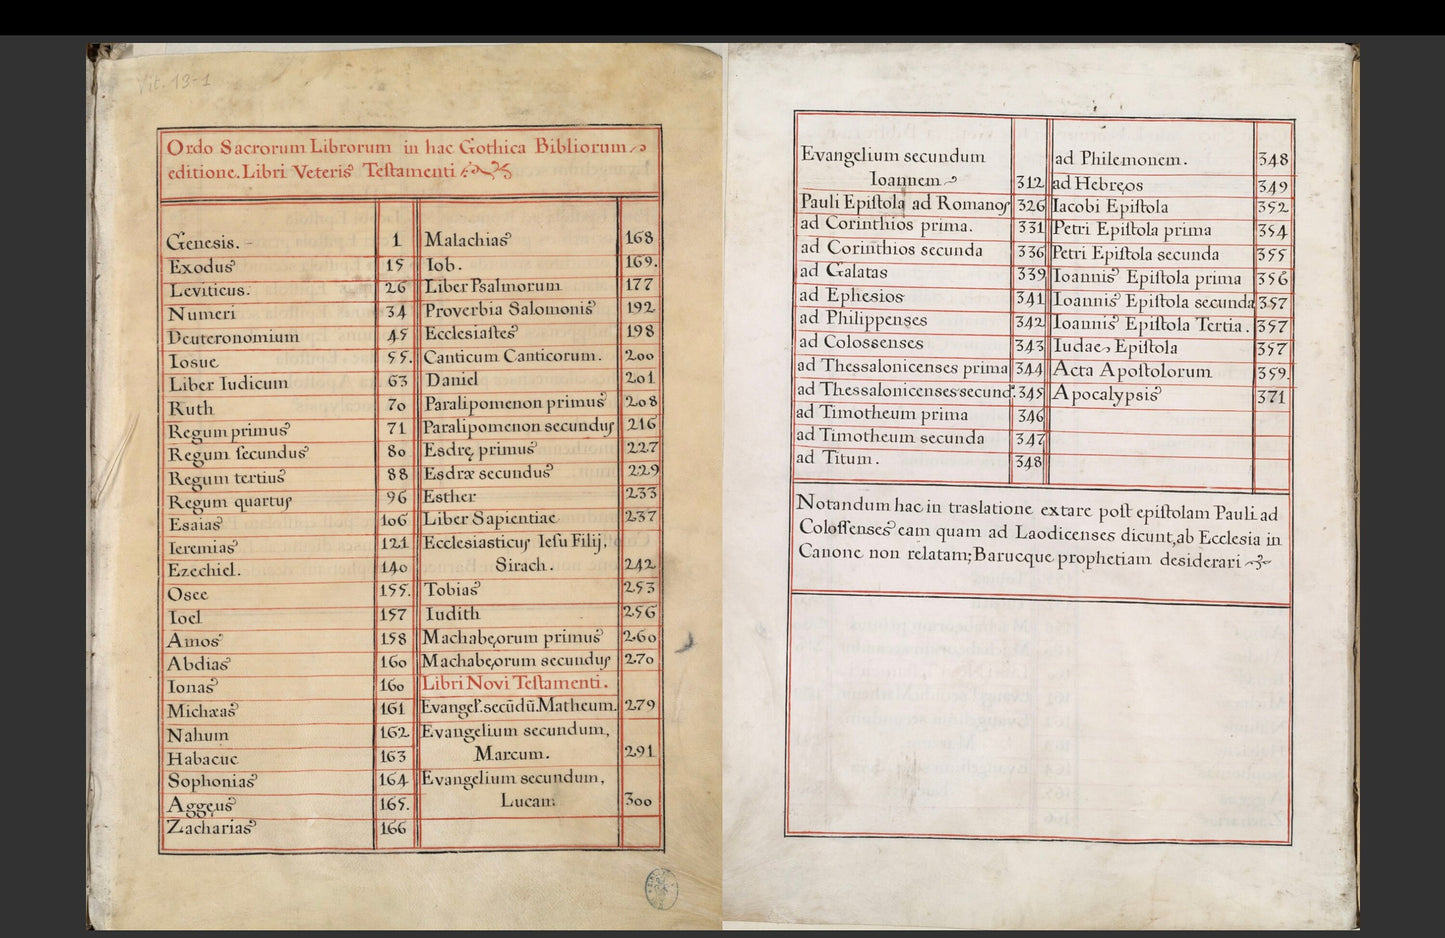 Vit. 13-1
Ordo Sacrorum Librorum in hac Gothica Bibliorum
editione. Libri Veteris Teſtamenti
Genesis. - 1
Exodus 15
Leviticus. 26
Numeri 34
Deuteronomium 45
Iosue 55.
Liber Iudicum 63
Ruth 70
Regum primus 71
Regum ſecundus 80
Regum tertius 88
Regum quartus 96
Esaias 106
Ieremias 121
Ezechiel. 140
Osee 155.
Ioel 157
Amos 158
Abdias 160
Ionas 160
Michæas 161
Nahum 162
Habacuc 163
Sophonias 164
Aggęus 165.
Zacharias 166
Malachias 168
Iob. 169.
Liber Psalmorum 177
Proverbia Salomonis 192
Ecclesiaſtes 198
Canticum Canticorum. 200
Daniel 201
Paralipomenon primus 208
Paralipomenon secundus 216
Esdrę primus 227
Esdræ secundus 229
Esther 233
Liber Sapientiae 237
Ecclesiasticus Ieſu Filij.
Sirach. 242
Tobias 253
Iudith 256
Machabęorum primus 260
Machabęorum secundus 270
Libri Novi Teſtamenti.
Evangel. secūdū. Matheum. 279
Evangelium secundum,
Marcum. 291
Evangelium secundum,
Lucam 300
Evangelium secundum
Ioannem 312
Pauli Epiſtola ad Romanos 326
ad Corinthios prima. 331
ad Corinthios secunda 336
ad Galatas 339
ad Ephesios 341
ad Philippenses 342
ad Colossenses 343
ad Thessalonicenses prima 344
ad Thessalonicenses secund. 345
ad Timotheum prima 346
ad Timotheum secunda 347
ad Titum. 348
ad Philemonem. 348
ad Hebręos 349
Iacobi Epiſtola 352
Petri Epiſtola prima 354
Petri Epiſtola secunda 355
Ioannis Epiſtola prima 356
Ioannis Epiſtola secunda 357
Ioannis Epiſtola Tertia. 357
Iudae, Epiſtola 357
Acta Apoſtolorum 359.
Apocalypsis 371
Notandum hac in traslatione extare poſt epiſtolam Pauli ad
Coloſſenses eam quam ad Laodicenses dicunt, ab Ecclesia in
Canone non relatam; Barucque prophetiam desiderari